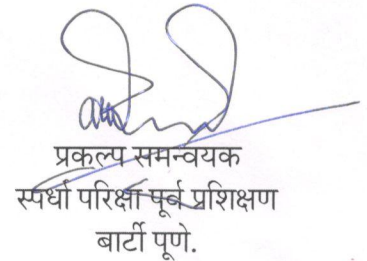 प्रकल्प समन्वयक
स्पर्धा परिक्षा पूर्व प्रशिक्षण
बार्टी पूणे.